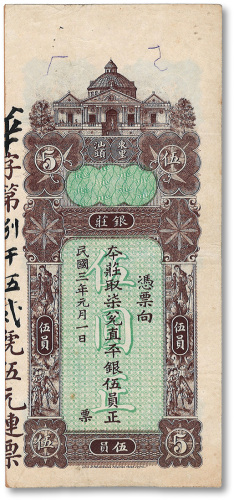 東里
汕頭
5 伍
莊銀
憑票向
本莊取柒兌直平銀伍員正
民國三年元月一日
票
伍員
伍員
伍圓
字第列千五貳號伍元連票
伍 5
員伍